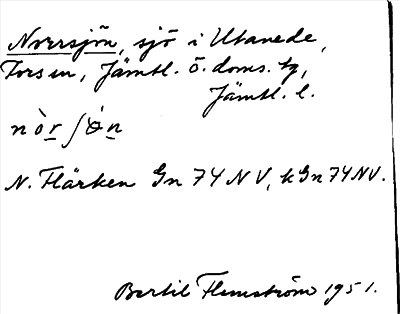 Norrsjön, sjö i Utanede,
Fors sn, Jämtl. ö. doms. tg,
Jämtl. l.
nòr ʃö́n
N. Flärken Gn 74 NV, kGn 74 NV.
Bertil Flemström 1951.